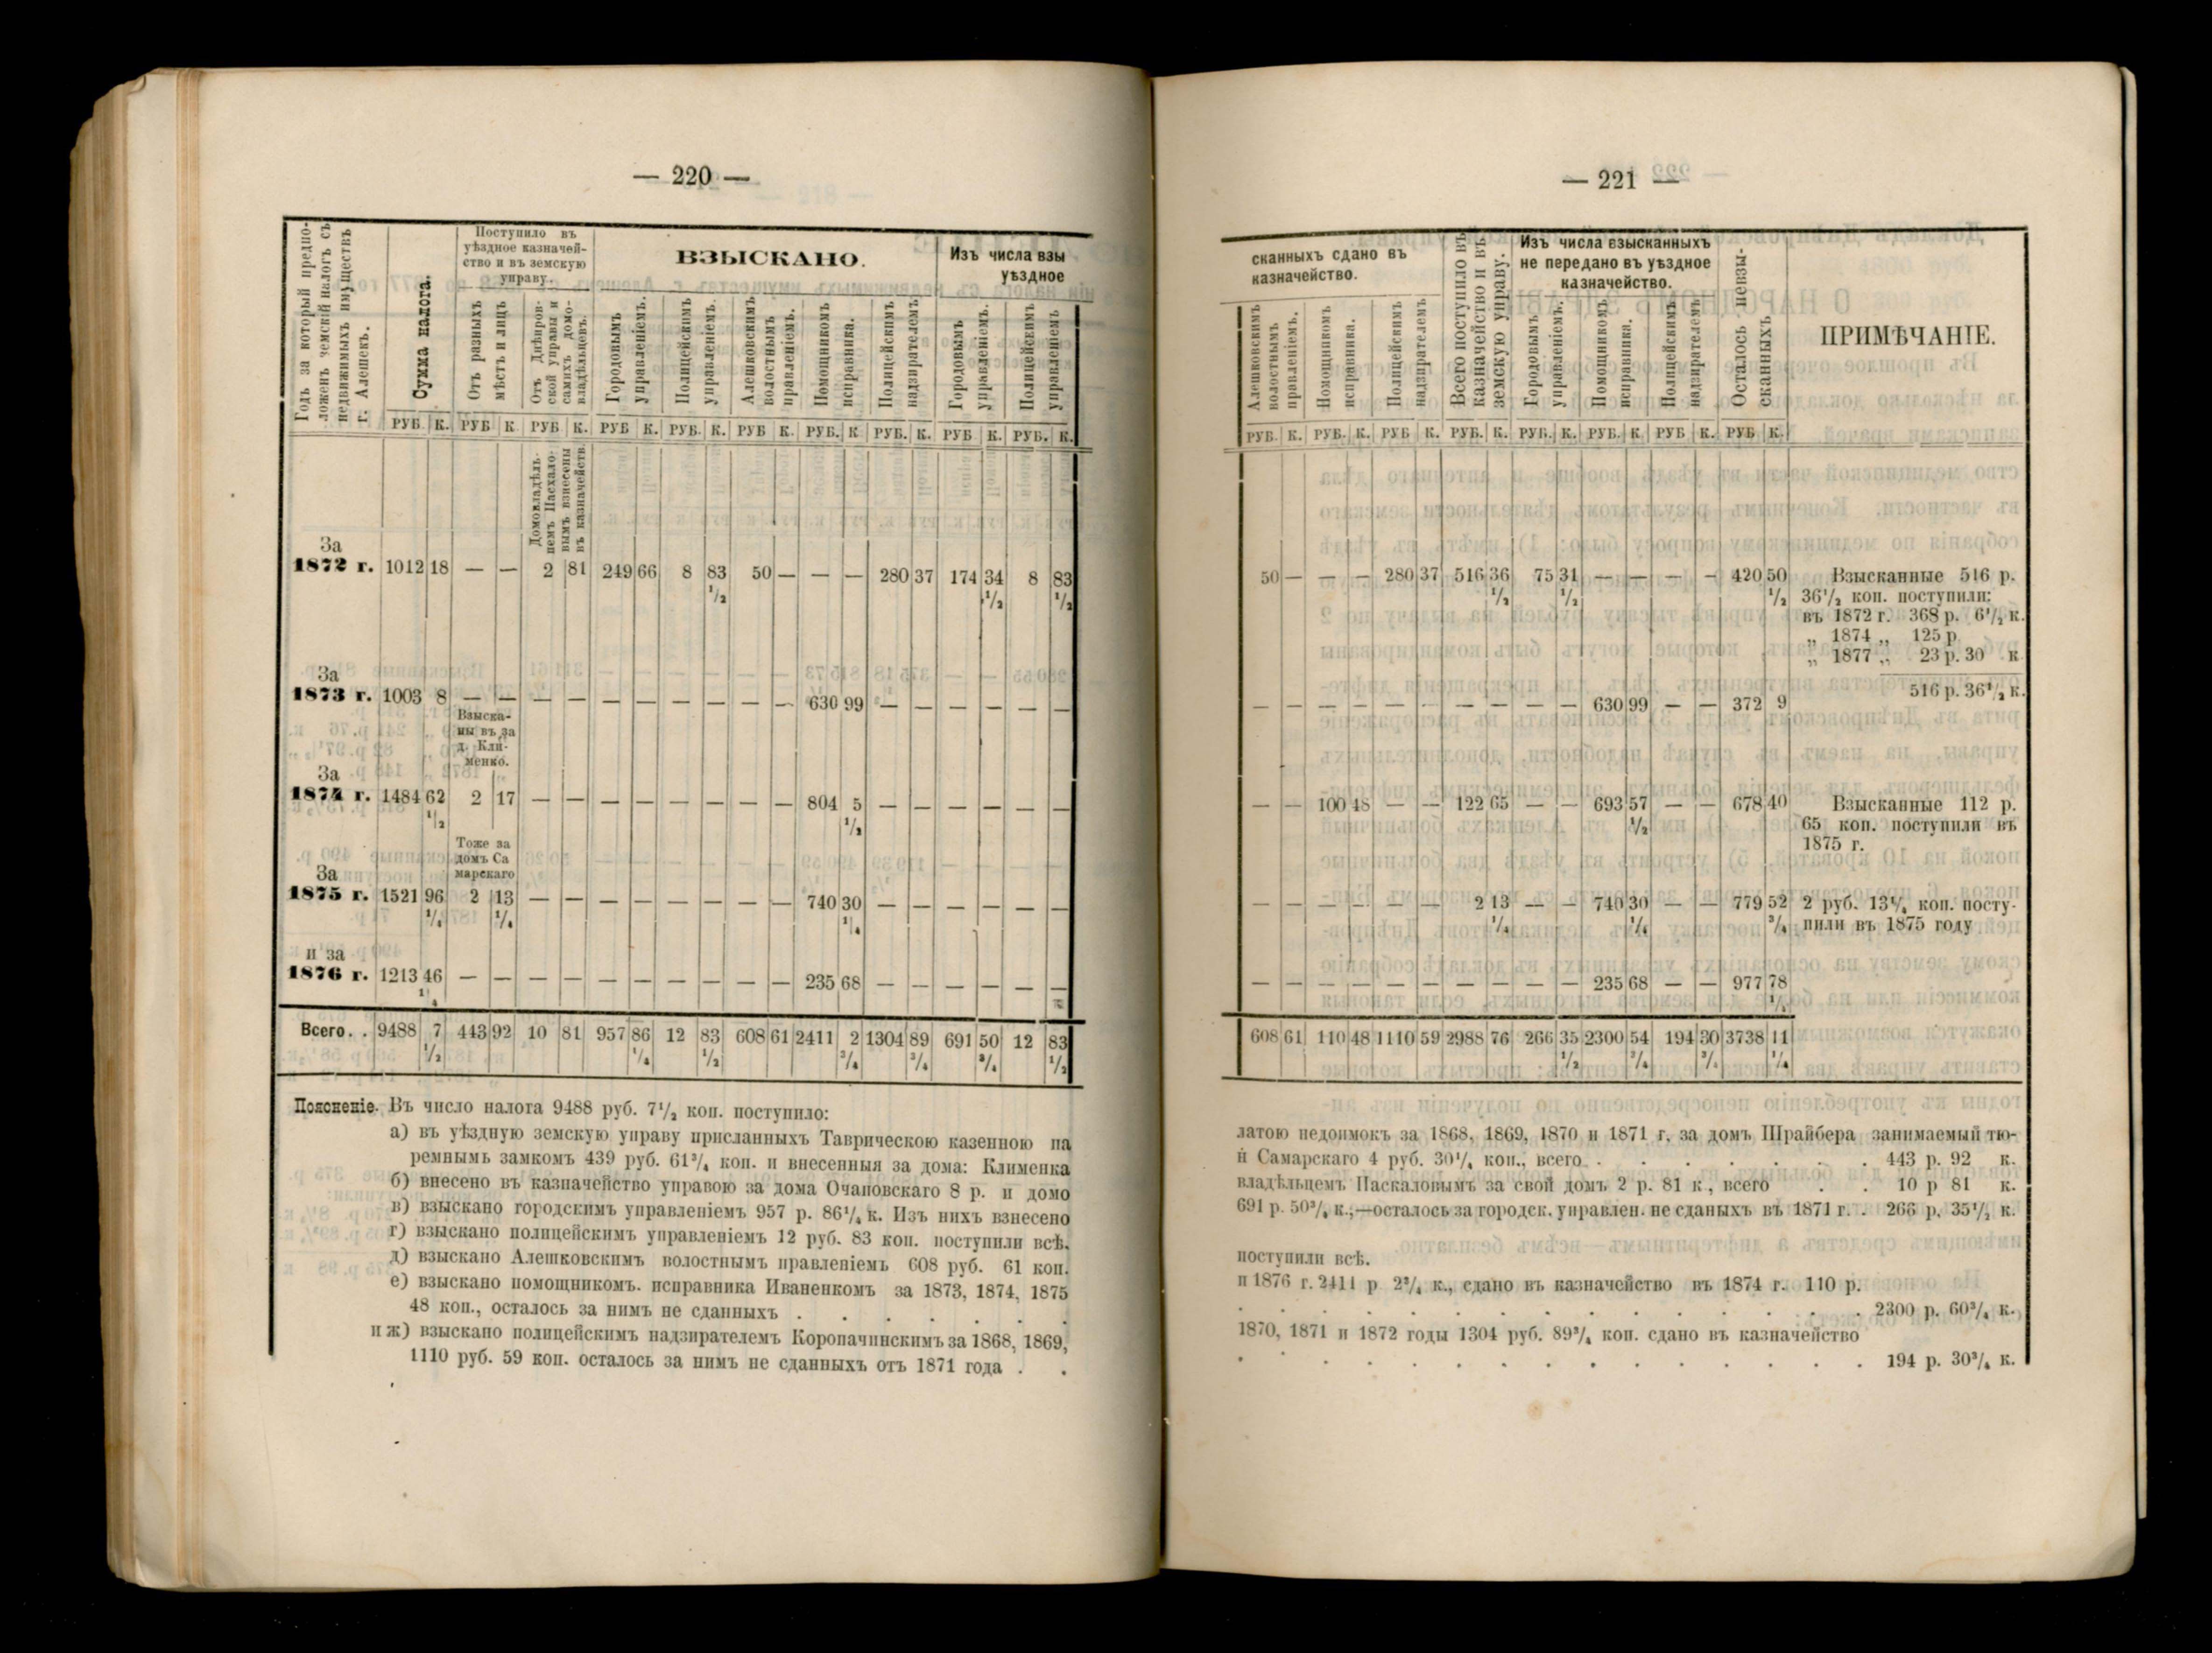 — 220 —
Годъ за который предпо-
ложенъ земскій налогъ съ
недвижимыхъ имуществъ
г. Алешекъ.
Сумма налога.
Поступило въ
уѣздное казначей-
ство и въ земскую
управу.
Отъ разныхъ
мѣстъ и лицъ
Отъ Днѣпров-
ской управы и
самихъ домо-
владѣльцевъ.
ВЗЫСКАНО.
Городовымъ
управленіемъ.
Полицейскимъ
управленіемъ.
Алешковскимъ
волостнымъ
правленіемъ.
Помощникомъ
исправника.
Полицейскимъ
надзирателемъ
Изъ числа взы
уѣздное
Городовымъ
управленіемъ.
Полицейскимъ
управленіемъ
РУБ К. РУБ К РУБ К. РУБ К. РУБ. К. РУБ К. РУБ. К РУБ. К. РУБ К. РУБ. К.
Домовладѣль-
цемъ Паскало-
вымъ взнесены
въ казначейств.
За
1872 г. 1012 18 — — 2 81 249 66 8 83 1/2 50 — — — 280 37 174 34 1/2 8 83 1/2
За
1873 г. 1003 8 — — — — — — — — — — 630 99 — — — — — —
Взыска-
ны въ за
д. Кли-
менко.
За
1874 г. 1484 62 1/2 2 17 — — — — — — — — 804 5 1/2 — — — — — —
Тоже за
домъ Са
марскаго
За
1875 г. 1521 96 1/4 2 13 1/4 — — — — — — — — 740 30 1/4 — — — — — —
и за
1876 г. 1213 46 1/4 — — — — — — — — — — 235 68 — — — — — —
Всего. . 9488 7 1/2 443 92 10 81 957 86 1/4 12 83 1/2 608 61 2411 2 3/4 1304 89 3/4 691 50 3/4 12 83 1/2
Поясненіе. Въ число налога 9488 руб. 7 1/2 коп. поступило:
а) въ уѣздную земскую управу присланныхъ Таврическою казенною па
ремнымъ замкомъ 439 руб. 61 3/4 коп. и внесенныя за дома: Клименка
б) внесено въ казначейство управою за дома Очаповскаго 8 р. и домо
в) взыскано городскимъ управленіемъ 957 р. 86 1/4 к. Изъ нихъ взнесено
г) взыскано полицейскимъ управленіемъ 12 руб. 83 коп. поступили всѣ.
д) взыскано Алешковскимъ волостнымъ правленіемъ 608 руб. 61 коп.
е) взыскано помощникомъ. исправника Иваненкомъ за 1873, 1874, 1875
48 коп., осталось за нимъ не сданныхъ . . . . . . .
и ж) взыскано полицейскимъ надзирателемъ Коропачинскимъ за 1868, 1869,
1110 руб. 59 коп. осталось за нимъ не сданныхъ отъ 1871 года . .
— 221 —
сканныхъ сдано въ
казначейство.
Алешковскимъ
волостнымъ
правленіемъ.
Помощникомъ
исправника.
Полицейскимъ
надзирателемъ
Всего поступило въ
казначейство и въ
земскую управу.
Изъ числа взысканныхъ
не передано въ уѣздное
казначейство.
Городовымъ
управленіемъ.
Помощникомъ
исправника.
Полицейскимъ
надзирателемъ
Осталось невзы-
сканныхъ
ПРИМѢЧАНІЕ.
РУБ. К. РУБ. К. РУБ К. РУБ. К. РУБ. К. РУБ. К РУБ К. РУБ К.
50 — — — 280 37 516 36 1/2 75 31 1/2 — — — — 420 50 1/2
Взысканные 516 р.
36 1/2 коп. поступили:
въ 1872 г. 368 р. 6 1/2 к.
„ 1874 „ 125 р
„ 1877 „ 23 р. 30 к
516 р. 36 1/2 к.
— — — — — — — — — — 630 99 — — 372 9
— — 100 48 — — 122 65 — — 693 57 1/2 — — 678 40
Взысканные 112 р.
65 коп. поступили въ
1875 г.
— — — — — — 2 13 1/4 — — 740 30 1/4 — — 779 52 3/4
2 руб. 13 1/4 коп. посту-
пили въ 1875 году
— — — — — — — — — — 235 68 — — 977 78 1/4
608 61 110 48 1110 59 2988 76 266 35 1/2 2300 54 3/4 194 30 3/4 3738 11 1/4
латою недоимокъ за 1868, 1869, 1870 и 1871 г. за домъ Шрайбера занимаемый тю-
и Самарскаго 4 руб. 30 1/4 коп., всего . . . . . . . 443 р. 92 к.
владѣльцемъ Паскаловымъ за свой домъ 2 р. 81 к., всего . . 10 р 81 к.
691 р. 50 3/4 к.,—осталось за городск. управлен. не сданыхъ въ 1871 г. . 266 р. 35 1/2 к.
поступили всѣ.
и 1876 г. 2411 р 2 3/4 к., сдано въ казначейство въ 1874 г. 110 р.
. . . . . . . . . . . . . . 2300 р. 60 3/4 к.
1870, 1871 и 1872 годы 1304 руб. 89 3/4 коп. сдано въ казначейство
. . . . . . . . . . . . . . 194 р. 30 3/4 к.